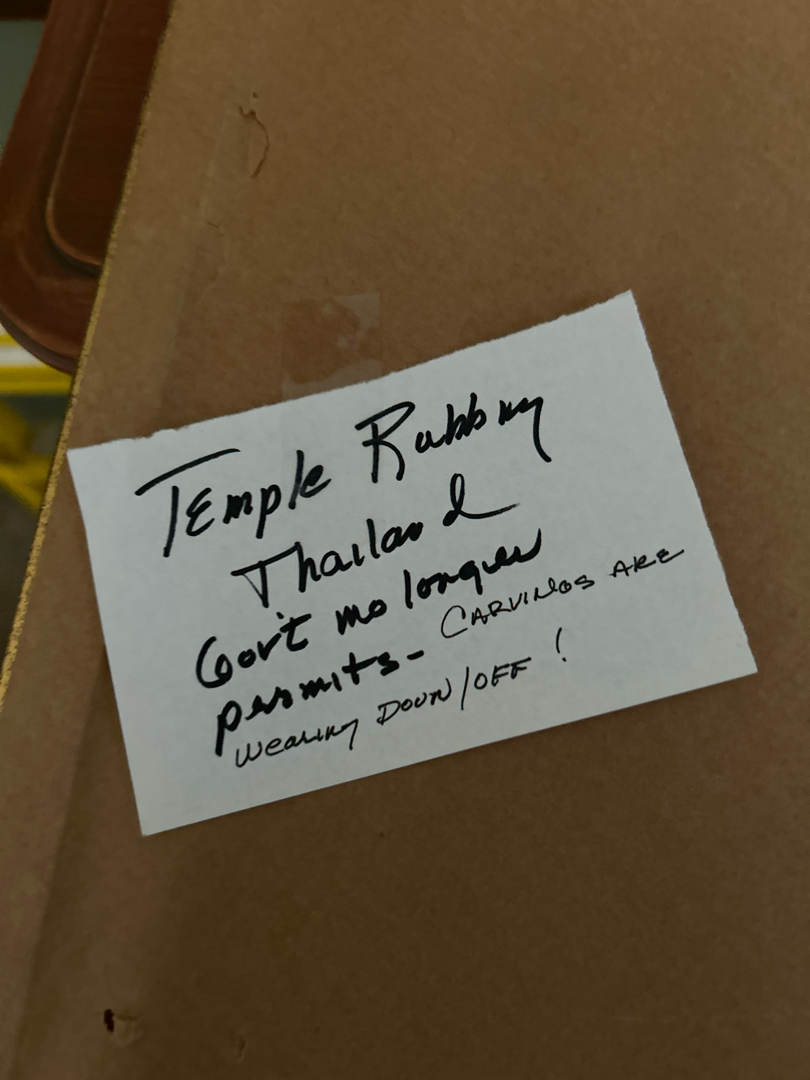 Temple Rubbing
Thailand
Gov't no longer
permits - CARVINGS ARE
wearing DOWN/OFF!